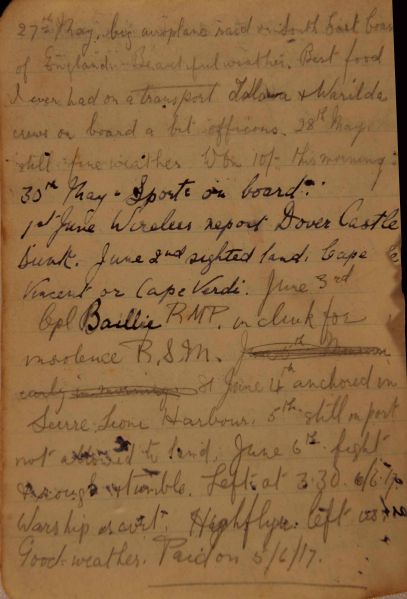 27th May, big airoplane raid on South East Coas
of England. Beautiful weather. Best food
I ever had on a transport Ulloa & Warilda
crews on board a bit officious. 28th May
still fine weather. 10/- this morning.
30th May - Sports on board.
1st June Wireless report Dover Castle
sunk. June 2nd sighted land. Cape
Vincent or Cape Verdi. June 3rd
Cpl Baillie RMP. in clink for
insolence R.S.M.
early in morning. June 4th anchored in
Sierre Lione Harbour. 5th still in port
not allowed to land. June 6th fight
through & tumble. Left at 3.30 6/6/17.
Warship escort. Highflyer left
Good weather. Paid on 5/6/17.